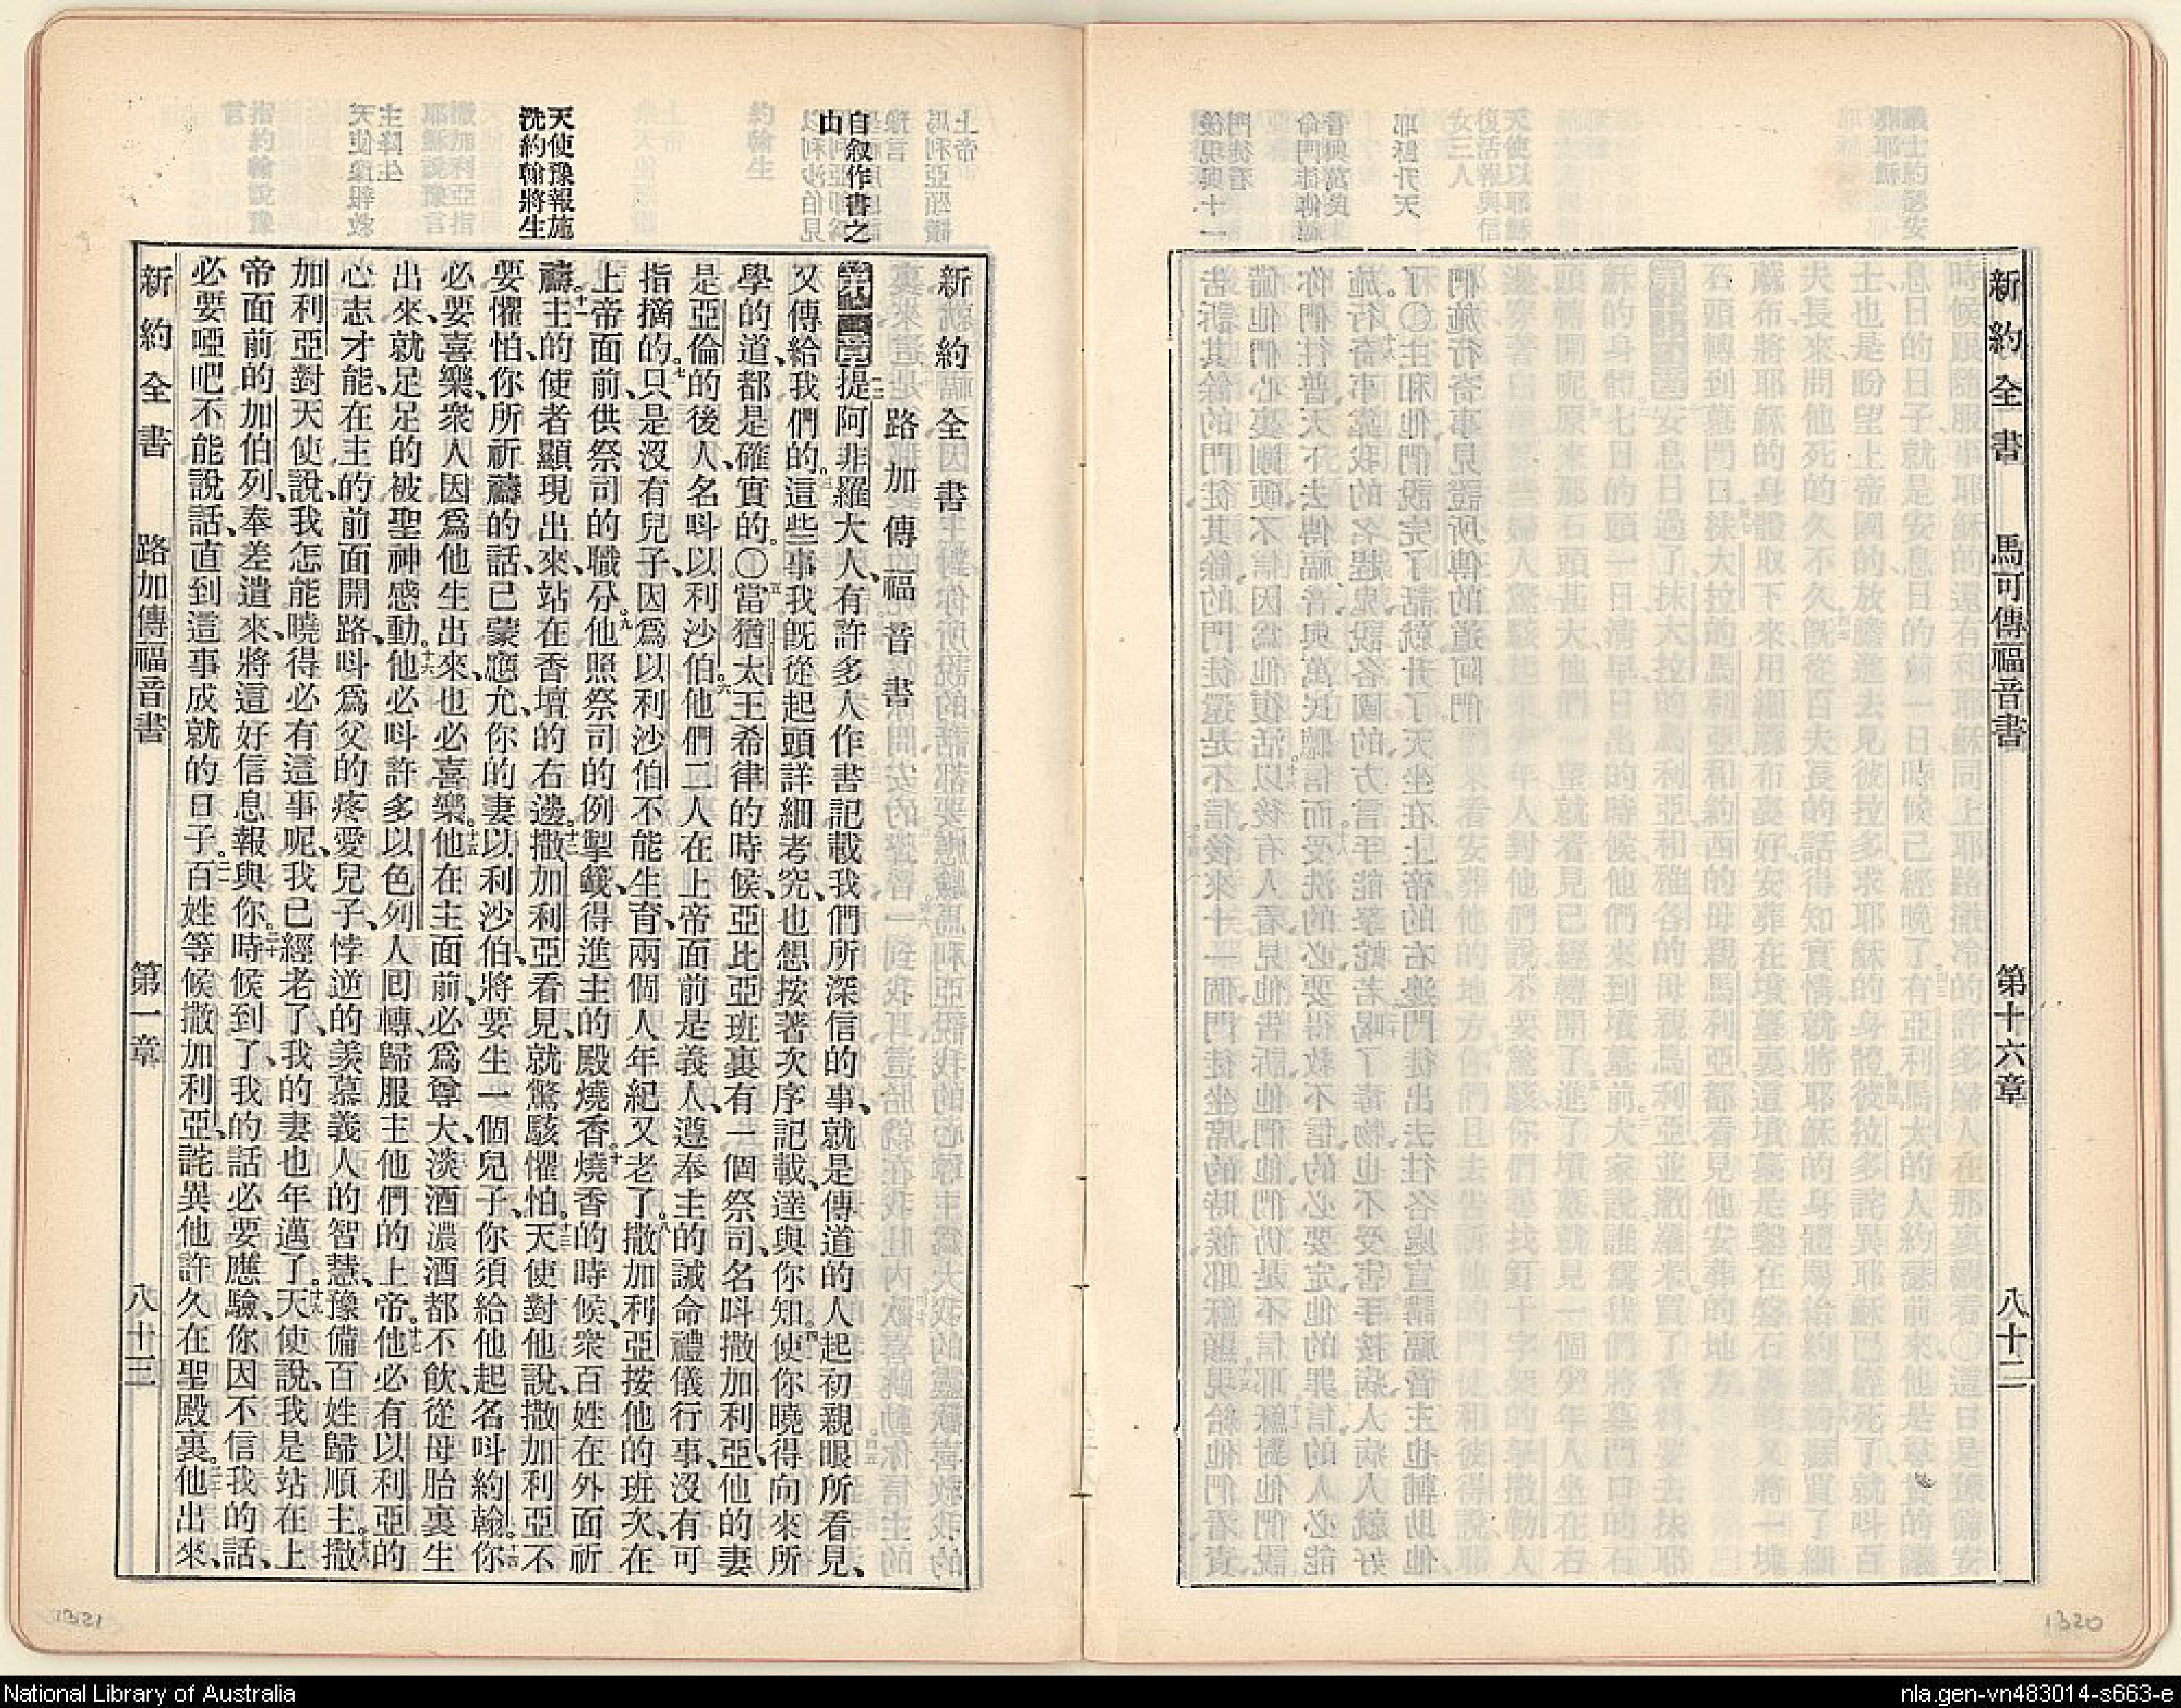 新約全書 馬可傳福音書 第十六章 八十二
自叙作書之
由
天使豫報施
洗約翰將生
新約全書
路加傳福音書
第一章一二提阿非羅大人、有許多人作書記載我們所深信的事、就是傳道的人起初親眼所看見、
又傳給我們的。三這些事我旣從起頭詳細考究、也想按著次序記載、達與你知。四使你曉得向來所
學的道、都是確實的。〇五當猶太王希律的時候、亞比亞班裏有一個祭司、名呌撒加利亞、他的妻
是亞倫的後人、名呌以利沙伯。六他們二人在上帝面前是義人、遵奉主的誡命禮儀行事、沒有可
指摘的。七只是沒有兒子、因爲以利沙伯不能生育、兩個人年紀又老了。八撒加利亞按他的班次、在
上帝面前、供祭司的職分。九他照祭司的例掣籤、得進主的殿燒香。十燒香的時候、衆百姓在外面祈
禱。十一主的使者顯現出來、站在香壇的右邊。十二撒加利亞看見、就驚駭懼怕。十三天使對他說、撒加利亞不
要懼怕、你所祈禱的話、已蒙應允、你的妻以利沙伯、將要生一個兒子、你須給他起名呌約翰。十四你
必要喜樂、衆人因爲他生出來、也必喜樂。十五他在主面前、必爲尊大、淡酒濃酒都不飲、從母胎裏生
出來、就足足的被聖神感動。十六他必呌許多以色列人囘轉、歸服主他們的上帝。十七他必有以利亞的
心志才能、在主的前面開路、呌爲父的疼愛兒子、悖逆的羨慕義人的智慧、豫備百姓歸順主。十八撒
加利亞對天使說、我怎能曉得必有這事呢、我已經老了、我的妻也年邁了。十九天使說、我是站在上
帝面前的加伯列、奉差遣來、將這好信息報與你。二十時候到了、我的話必要應驗、你因不信我的話、
必要啞吧不能說話、直到這事成就的日子。二一百姓等候撒加利亞、詫異他許久在聖殿裏。二二他出來、
新約全書 路加傳福音書 第一章 八十三
1321
1320
National Library of Australia
nla.gen-vn483014-s663-e